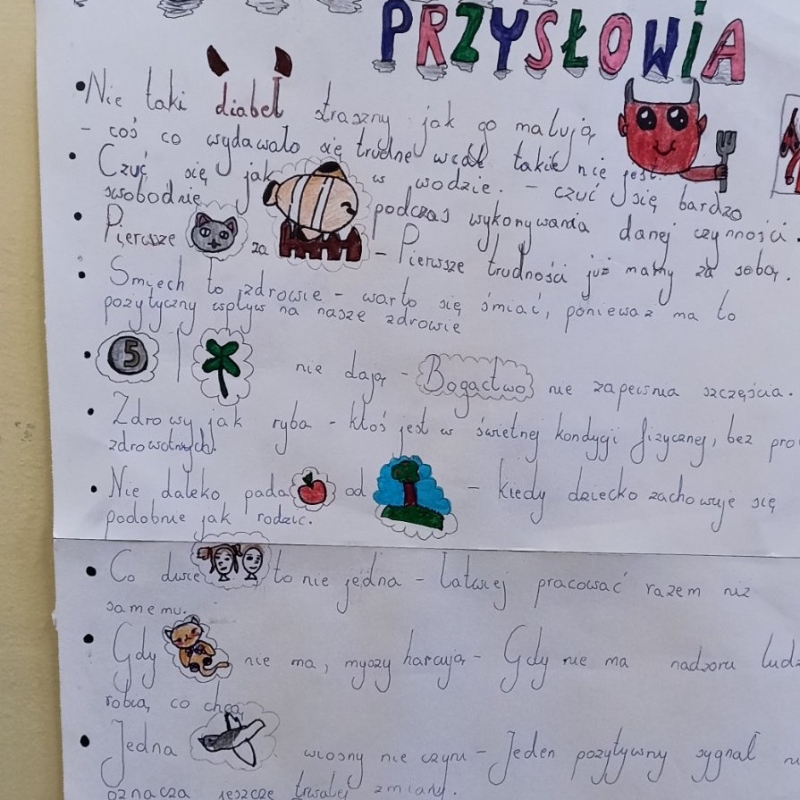 PRZYSŁOWIA
Nie taki diabeł straszny jak go malują
- coś co wydawało się trudne wcale takie nie jest.
Czuć się jak w wodzie. - czuć się bardzo
swobodnie podczas wykonywania danej czynności.
Pierwsze za - Pierwsze trudności już mamy za sobą.
Śmiech to zdrowie - warto się śmiać, ponieważ ma to
pozytyczny wpływ na nasze zdrowie
5 nie dają - Bogactwo nie zapewnia szczęścia.
Zdrowy jak ryba - ktoś jest w świetnej kondygi fizycznej, bez pro
zdrowotnych.
Nie daleko pada od - kiedy dziecko zachowuje się
podobnie jak rodzic.
Co dwie to nie jedna - Łatwiej pracować razem niż
samemu.
Gdy nie ma, myszy harcują - Gdy nie ma nadzoru ludz
robią, co chcą
Jedna wiosny nie czyni - Jeden pozytywny sygnał
oznacza jeszcze trwałej zmiany.